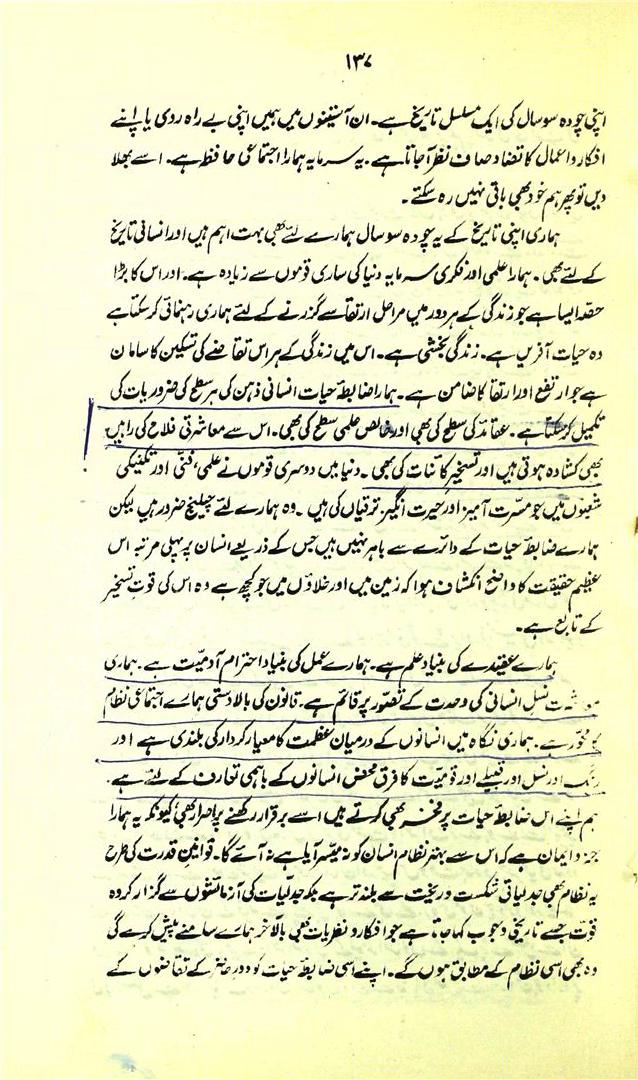 ۱۳۷
اپنی چودہ سو سال کی ایک مسلسل تاریخ ہے۔ ان آئینوں میں ہمیں اپنی بے راہ روی یا اپنے
افکار و اعمال کا تضاد صاف نظر آجاتا ہے۔ یہ سرمایہ ہمارا اجتماعی حافظہ ہے۔ اسے بھلا
دیں تو پھر ہم خود بھی باقی نہیں رہ سکتے۔
ہماری اپنی تاریخ کے یہ چودہ سو سال ہمارے لئے بھی بہت اہم ہیں اور انسانی تاریخ
کے لئے بھی۔ ہمارا علمی اور فکری سرمایہ دنیا کی ساری قوموں سے زیادہ ہے۔ اور اس کا بڑا
حصہ ایسا ہے جو زندگی کے ہر دور میں مراحل ارتقا سے گزرنے کے لئے ہماری رہنمائی کرسکتا ہے
وہ حیات آفریں ہے۔ زندگی بخشی ہے۔ اس میں زندگی کے ہر اس تقاضے کی تسکین کا سامان
ہے جو ارتفع اور ارتقا کا ضامن ہے۔ ہمارا ضابطۂ حیات انسانی ذہن کی ہر سطح کی ضروریات کی
تکمیل کرسکتا ہے۔ عقائد کی سطح کی بھی اور خالص علمی سطح کی بھی۔ اس سے معاشرتی فلاح کی راہیں
بھی کشادہ ہوتی ہیں اور تسخیر کائنات کی بھی۔ دنیا میں دوسری قوموں نے علمی، فنّی اور تکنیکی
شعبوں میں جو مسرّت آمیز اور حیرت انگیز ترقیاں کی ہیں۔ وہ ہمارے لئے چیلنج ضرور ہیں لیکن
ہمارے ضابطۂ حیات کے دائرے سے باہر نہیں ہیں جس کے ذریعے انسان پر پہلی مرتبہ اس
عظیم حقیقت کا واضح انکشاف ہوا کہ زمین میں اور خلاؤں میں جو کچھ ہے وہ اس کی قوت تسخیر
کے تابع ہے۔
ہمارے عقیدے کی بنیاد علم ہے۔ ہمارے عمل کی بنیاد احترام آدمیت ہے۔ ہماری
نسل انسانی کی وحدت کے تصوّر پر قائم ہے۔ قانون کی بالادستی ہمارے اجتماعی نظام
کا محور ہے۔ ہماری نگاہ میں انسانوں کے درمیان عظمت کا معیار کردار کی بلندی ہے اور
رنگ اور نسل اور قبیلے اور قومیّت کا فرق محض انسانوں کے باہمی تعارف کے لئے ہے۔
ہم اپنے اس ضابطۂ حیات پر فخر بھی کرتے ہیں اسے برقرار رکھنے پر اصرار بھی؛ کیونکہ یہ ہمارا
جزو ایمان ہے کہ اس سے بہتر نظام انسان کو نہ میسّر آیا ہے نہ آئے گا۔ قوانین قدرت کی طرح
یہ نظام بھی جدلیاتی شکست و ریخت سے بلند تر ہے بلکہ جدلیات کی آزمائشوں سے گزار کر وہ
قوت جسے تاریخی وجوب کہا جاتا ہے جو افکار و نظریات بھی بالآخر ہمارے سامنے پیش کرے گی
وہ بھی اسی نظام کے مطابق ہوں گے۔ اپنے اسی ضابطۂ حیات کو دور حاضر کے تقاضوں کے